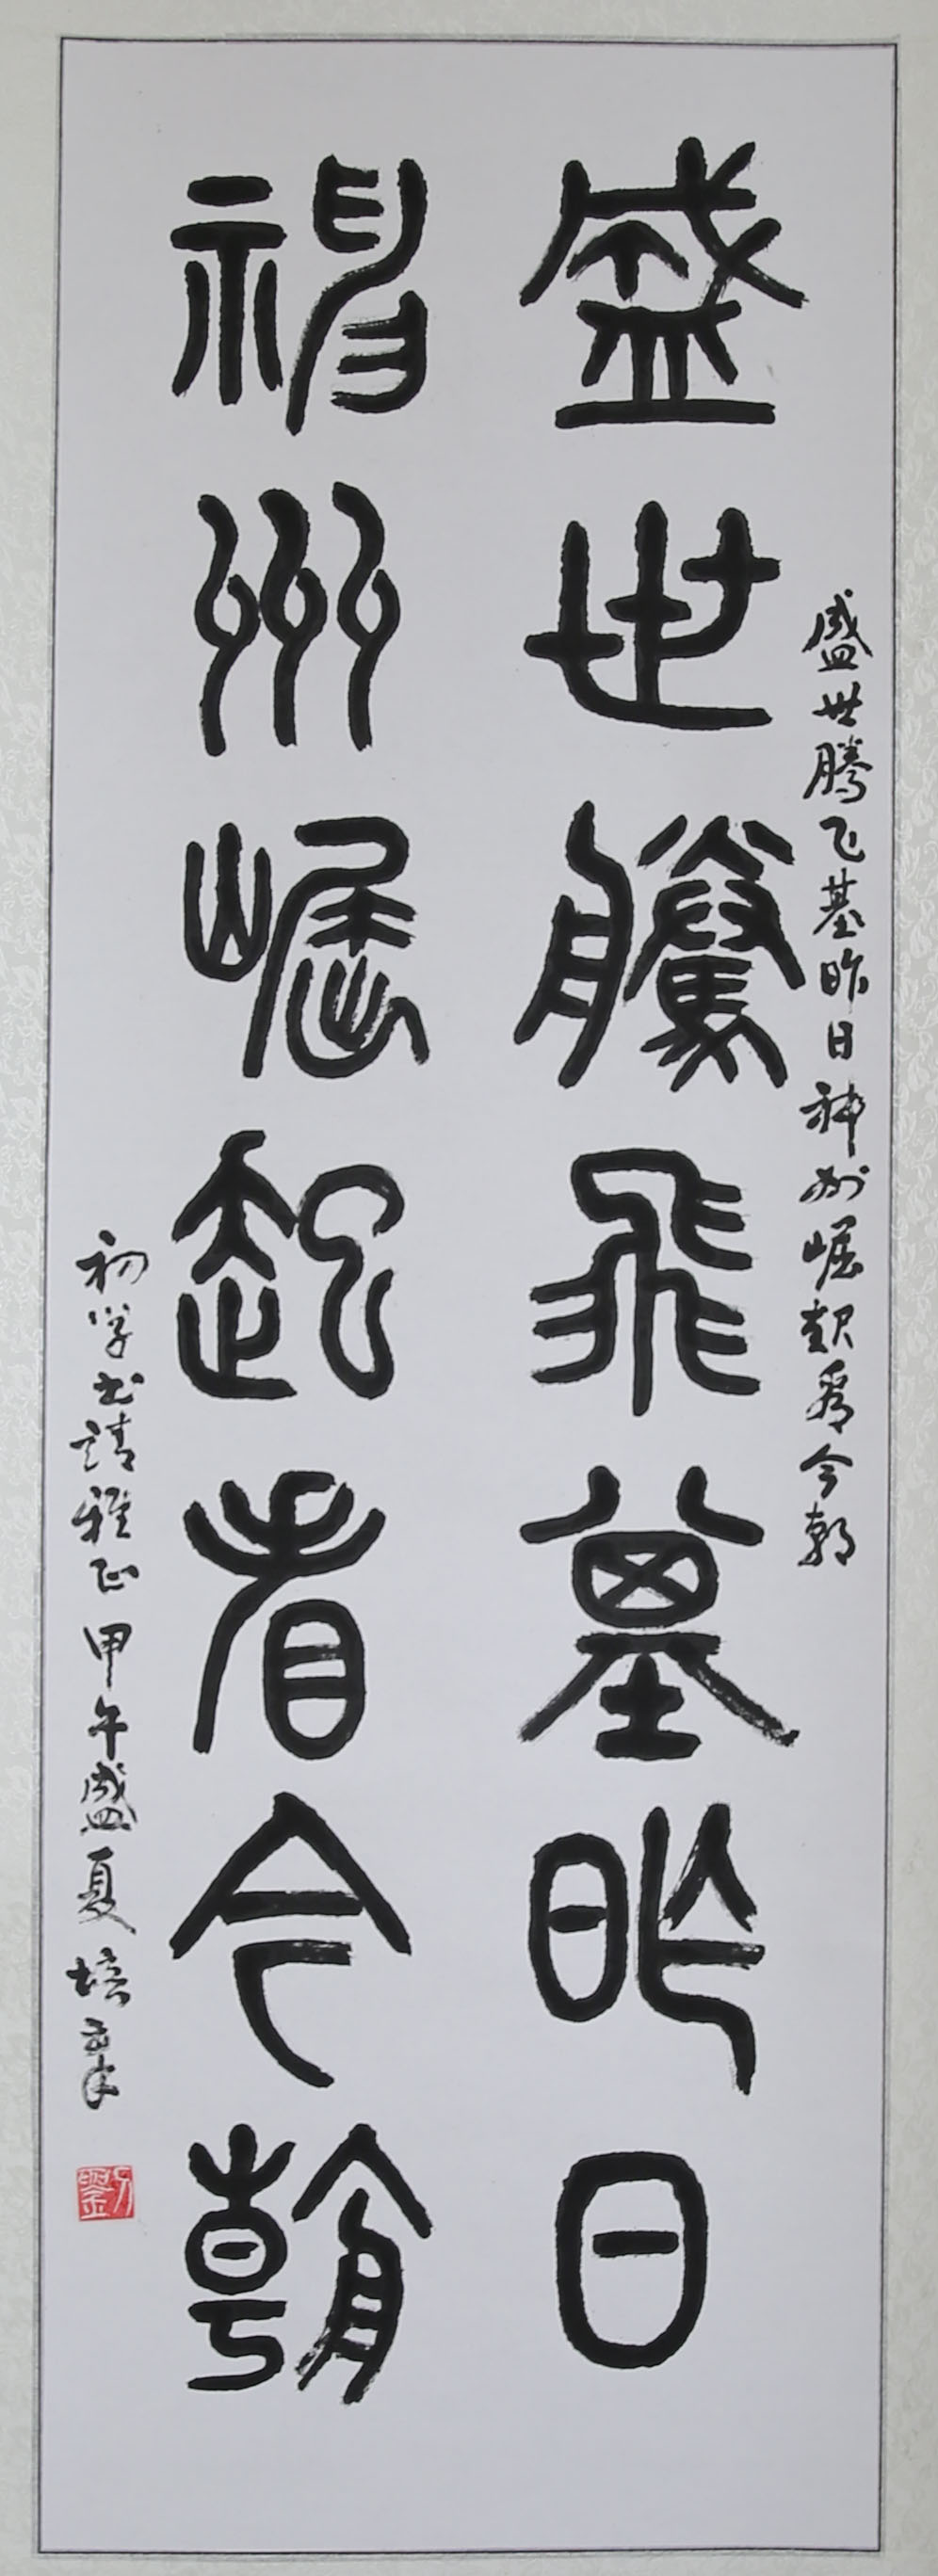 盛世騰飛基昨日
神州崛起看今朝
盛世騰飞基昨日神州崛起看今朝
初学书請雅正甲午盛夏培章